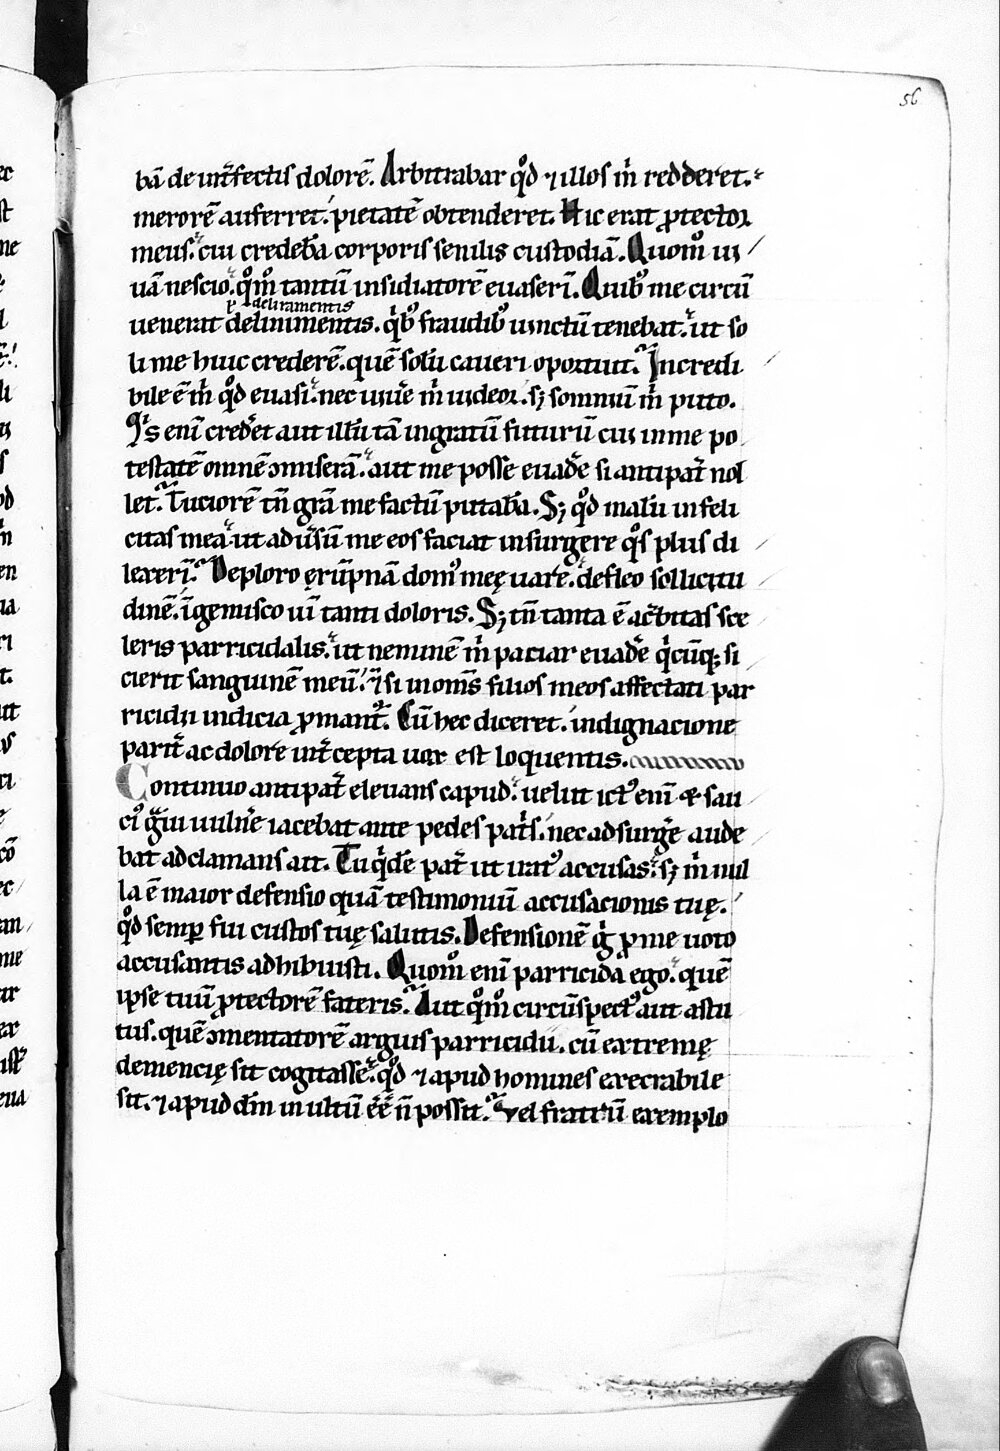 56
bā de int̄fectis dolorē. Arbitrabar qd̊ ⁊ illos m̄ redderet.
merorē auferret. pietatē obtenderet. Hic erat ꝓtector
meus. cui credebā corporis senilis custodiā. Quom̊ iu
uā nescio. qm̊ tantū insidiatorē euaserī. Quibꝰ me circū
p̄ deliramentis
uenerat delinimentis. qͥbꝰ fraudibꝰ uinctū tenebat. ut so
li me huic crederē. quē solū caueri oportuit. Incredi
bile ē m̄ qd̊ euasi. nec uiuͤe m̄ uideor. sꝫ somniū m̄ puto.
Qͥs enī credͤet aut illū tā ingratū futurū cui in me po
testatē omnē ꝯmiserā. aut me posse euadͤe si antipat̄ nol
let. Tuciorē tn̄ grā me factū putabā. Sꝫ qd̊ malū infeli
citas mea ut aduͤsū me eos faciat insurgere qͦs plus di
lexerī. Deploro ęrūpnā domꝰ meę uarͤe. defleo sollicitu
dinē. īgemisco uī tanti doloris. Sꝫ tn̄ tanta ē acͤbitas sce
leris parricidalis. ut neminē m̄ paciar euadͤe qͥcūqꝫ si
cierit sanguinē meū. ⁊ si in om̄s filios meos affectati par
ricidii indicia ꝓmant᷑. Cū hec diceret. indignacione
parit̄ ac dolore int̄cepta uox est loquentis.
Continuo antipat̄ eleuans capud. uelut ictꝰ enī ⁊ sau
cꝰ gͣui uulnͤe iacebat ante pedes pat̄s. nec adsurgͤe aude
bat adclamans ait. Tu qͥdē pat̄ ut iratꝰ accusas. sꝫ m̄ nul
la ē maior defensio quā testimoniū accusacionis tuę.
qd̊ semꝑ fui custos tuę salutis. Defensionē gͥ ꝓ me uoto
accusantis adhibuisti. Quom̊ enī parricida ego. quē
ipse tuū ꝓtectorē fateris. Aut qm̊ circūspectꝰ aut astu
tus. quē ꝯmentatorē arguis parricidii. cū extremę
demencię sit cogitasse. qd̊ ⁊ apud homines execrabile
sit. ⁊ apud dm̄ inultū ēē n̄ possit. Vel fratrū exemplo